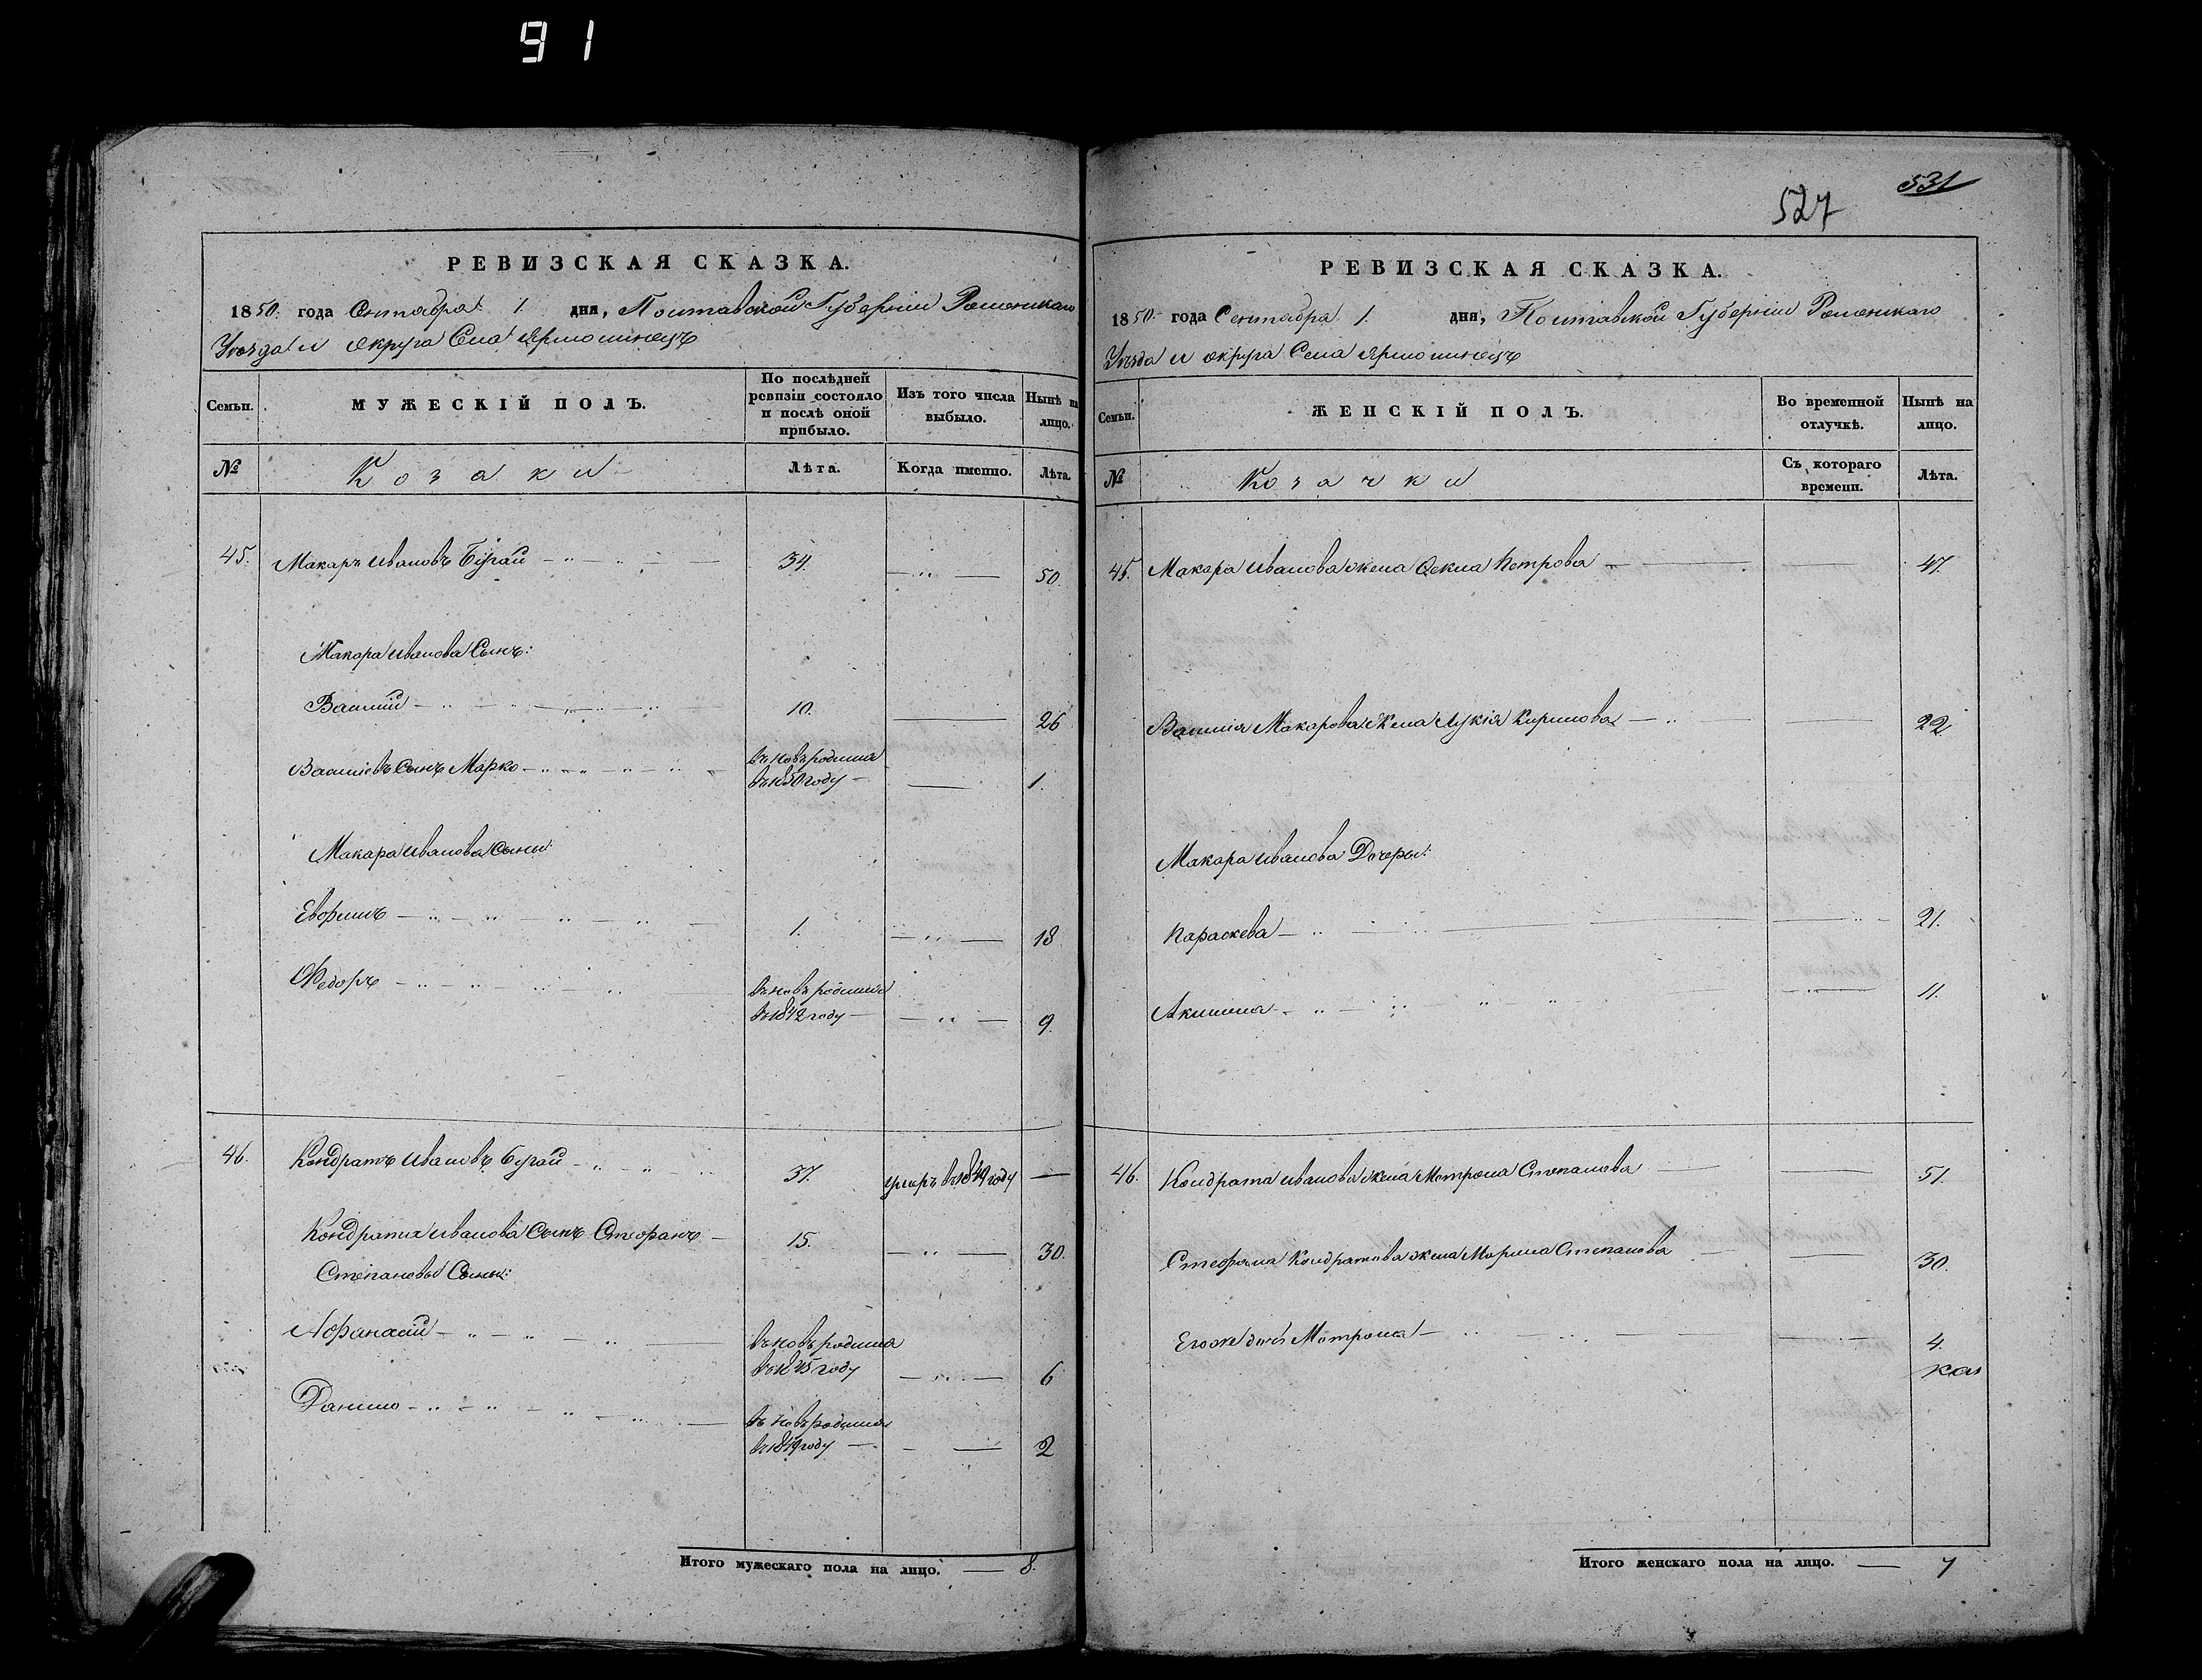 91
РЕВИЗСКАЯ СКАЗКА.
1850. года Сентября 1. дня, Полтавской Губерніи Роменскаго
Уѣзда и округа Села Ярмолинецъ
Семьи.
МУЖЕСКІЙ ПОЛЪ.
По послѣдней ревизіи состояло и послѣ оной прибыло.
Изъ того числа выбыло.
Нынѣ на лицо.
№
Козаки
Лѣта.
Когда именно.
Лѣта.
45. Макаръ Ивановъ Бугай 34. 50.
Макара Иванова Сынъ:
Василій 10. 26
Василіевъ Сынъ Марко вновь родился
въ 1850 году 1.
Макара Иванова Сыны:
Евфимъ 1. 18
Федоръ вновь родился
въ 1842 году 9.
46. Кондратъ Ивановъ Бугай 37. умеръ въ 1849 году
Кондратія Иванова Сынъ Стефанъ 15. 30.
Степановы Сыны:
Афанасій вновь родился
въ 1845 году 6
Данило вновь родился
въ 1849 году 2
Итого мужескаго пола на лицо. 8.
531
527
РЕВИЗСКАЯ СКАЗКА.
1850. года Сентября 1. дня, Полтавской Губерніи Роменскаго
Уѣзда и округа Села Ярмолинецъ
Семьи.
ЖЕНСКІЙ ПОЛЪ.
Во временной отлучкѣ.
Нынѣ на лицо.
№
Козачки
Съ котораго времени.
Лѣта.
45. Макара Иванова жена Фекла Петрова 47.
Василія Макарова жена Лукія Кирилова 22
Макара Иванова Дочери:
Параскева 21.
Акилина 11.
46. Кондрата Иванова жена Мотрона Степанова 51.
Стефана Кондратова жена Марина Степанова 30.
Его жъ дочь Мотрона 4.
Итого женскаго пола на лицо. 7